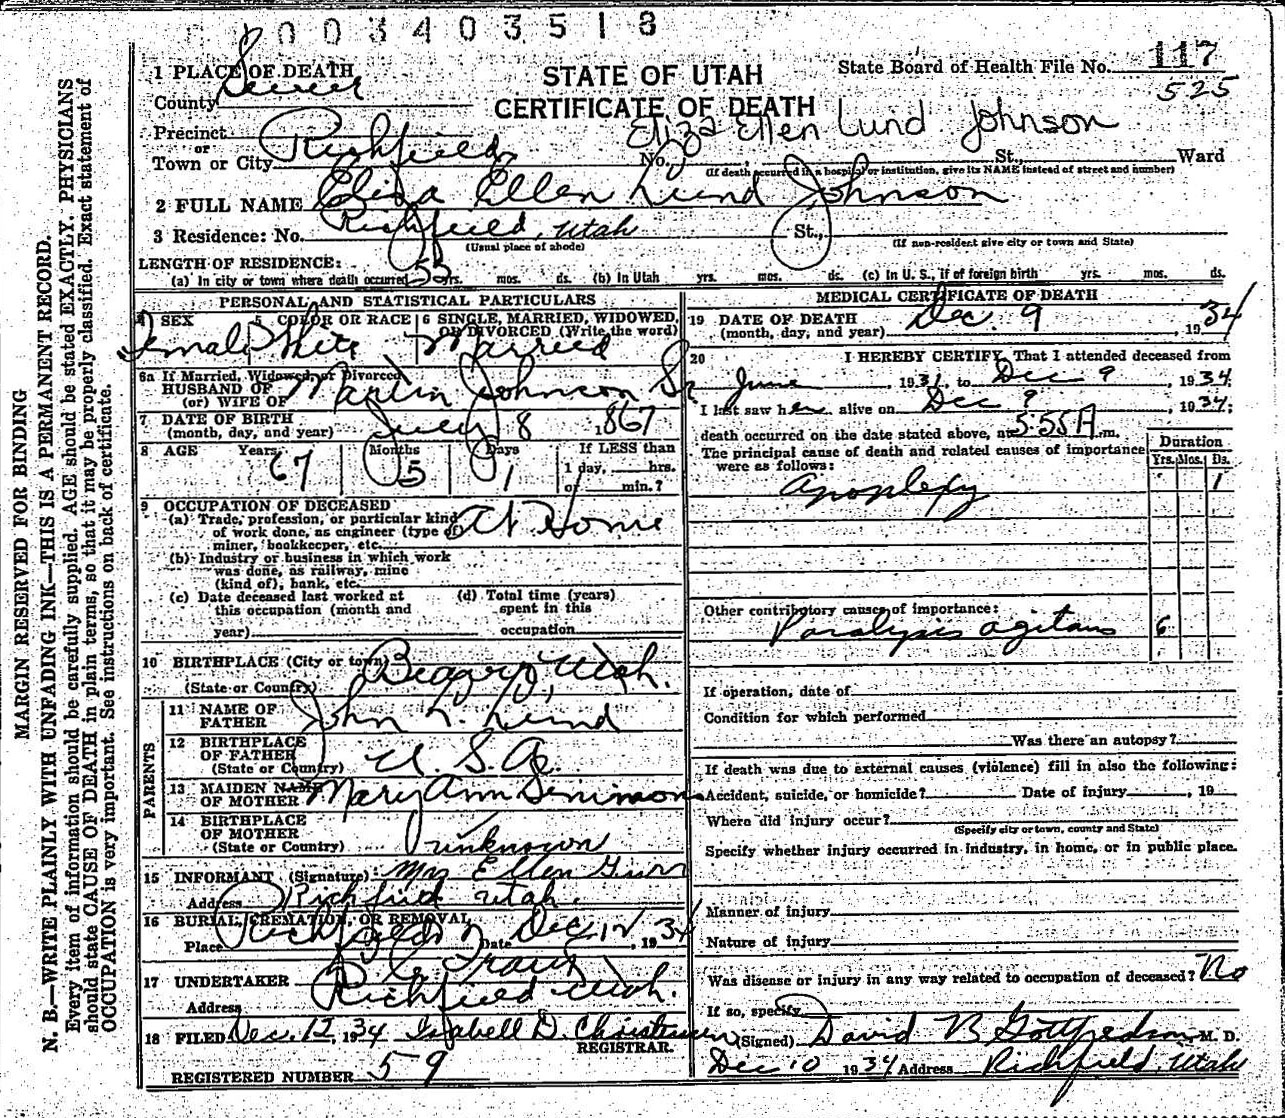 0 0 3 4 0 3 5 1 8
MARGIN RESERVED FOR BINDING
N. B.—WRITE PLAINLY WITH UNFADING INK—THIS IS A PERMANENT RECORD.
Every item of information should be carefully supplied. AGE should be stated EXACTLY. PHYSICIANS
should state CAUSE OF DEATH in plain terms, so that it may be properly classified. Exact statement of
OCCUPATION is very important. See instructions on back of certificate.
STATE OF UTAH
CERTIFICATE OF DEATH
State Board of Health File No. 117
525
1 PLACE OF DEATH
County Sevier
Precinct
or
Town or City Richfield
Eliza Ellen Lund Johnson
No. St., Ward
(If death occurred in a hospital or institution, give its NAME instead of street and number)
2 FULL NAME Eliza Ellen Lund Johnson
3 Residence: No. Richfield, Utah St.,
(Usual place of abode) (If non-resident give city or town and State)
LENGTH OF RESIDENCE:
(a) In city or town where death occurred yrs. mos. ds. (b) In Utah yrs. mos. ds. (c) In U. S., if of foreign birth yrs. mos. ds.
PERSONAL AND STATISTICAL PARTICULARS
4 SEX 5 COLOR OR RACE 6 SINGLE, MARRIED, WIDOWED,
OR DIVORCED (Write the word)
Female White Married
6a If Married, Widowed, or Divorced
HUSBAND OF
(or) WIFE OF Martin Johnson Sr
7 DATE OF BIRTH
(month, day, and year) July 8 1867
8 AGE Years Months Days If LESS than
67 5 1 1 day, hrs.
or min.?
9 OCCUPATION OF DECEASED
(a) Trade, profession, or particular kind
of work done, as engineer (type of
miner, bookkeeper, etc. At Home
(b) Industry or business in which work
was done, as railway, mine
(kind of), bank, etc.
(c) Date deceased last worked at (d) Total time (years)
this occupation (month and spent in this
year) occupation
10 BIRTHPLACE (City or town) Utah.
(State or Country)
PARENTS
11 NAME OF
FATHER John Lund
12 BIRTHPLACE
OF FATHER
(State or Country) U. S. A.
13 MAIDEN NAME
OF MOTHER Mary Ann Simmons
14 BIRTHPLACE
OF MOTHER
(State or Country) unknown
15 INFORMANT (Signature) Mrs Ellen
Address Richfield Utah.
16 BURIAL, CREMATION, OR REMOVAL
Place Richfield Date Dec 12, 1934
17 UNDERTAKER
Address Richfield Utah.
18 FILED Dec. 12, 1934 Isabell D. Christensen
REGISTRAR.
REGISTERED NUMBER 59
MEDICAL CERTIFICATE OF DEATH
19 DATE OF DEATH
(month, day, and year) Dec. 9, 1934
20 I HEREBY CERTIFY, That I attended deceased from
June, 1931, to Dec 9, 1934
I last saw her alive on Dec 9, 1934;
death occurred on the date stated above, at 5:55 A. m.
The principal cause of death and related causes of importance
were as follows:
Duration
Yrs. Mos. Ds.
Apoplexy 1
Other contributory causes of importance:
Paralysis agitans 6
If operation, date of
Condition for which performed
Was there an autopsy?
If death was due to external causes (violence) fill in also the following:
Accident, suicide, or homicide? Date of injury, 19
Where did injury occur?
(Specify city or town, county and State)
Specify whether injury occurred in industry, in home, or in public place.
Manner of injury
Nature of injury
Was disease or injury in any way related to occupation of deceased? No
If so, specify
(Signed) David B Gottfredson, M. D.
Dec 10 1934 Address Richfield, Utah